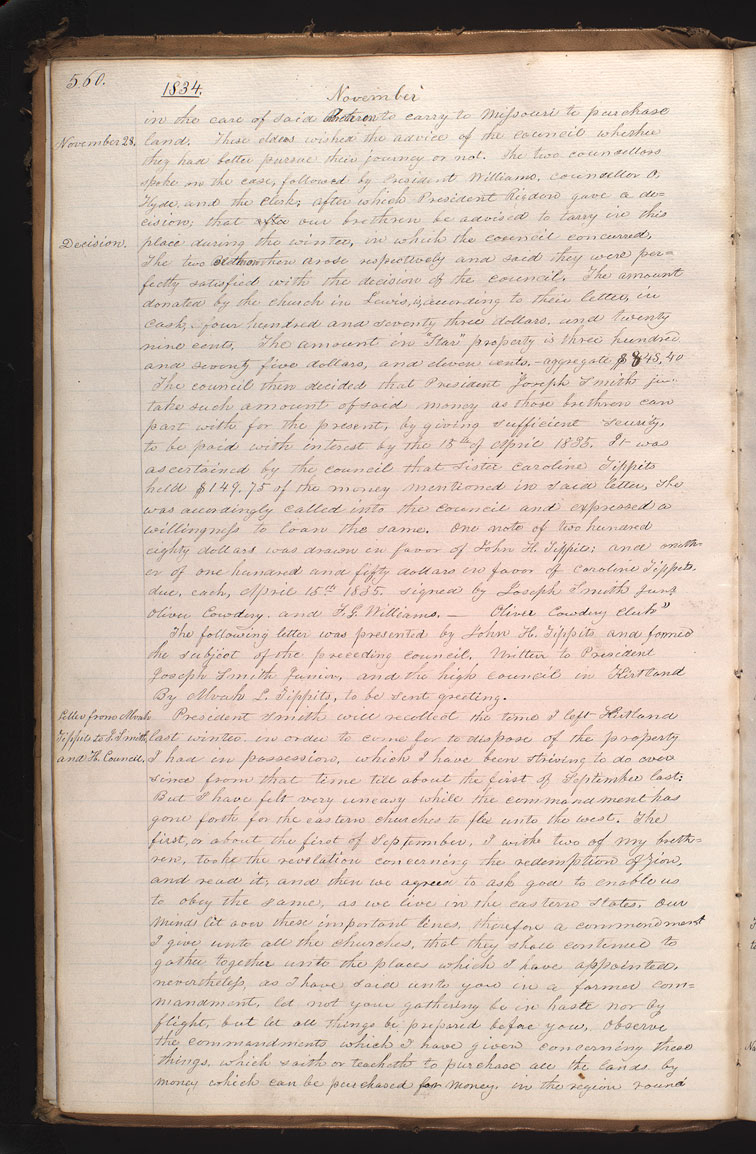 560.
1834.
November
in the care of said Brethren to carry to Missouri to purchase
November 28. land. These elders wished the advice of the council whether
they had better pursue their journey or not. The two counsellors
spoke on the case, followed by President Williams, counsellor O.
Hyde, and the clerk; after which President Rigdon gave a de=
cision; that our brethren be advised to tarry in this
Decision. place during the winter, in which the council concurred.
The two then arose respectively and said they were per=
fectly satisfied with the decision of the council. The amount
donated by the church in Lewis, is, according to their letter, in
cash,—four hundred and seventy three dollars, and twenty
nine cents. The amount in "Star" property is three hundred
and seventy five dollars, and eleven cents.—aggregate $848.40
The council then decided that President Joseph Smith jun:
take such amount of said money as those brethren can
part with for the present, by giving sufficient security,
to be paid with interest by the 15th of April 1835. It was
ascertained by the council that Sister Caroline Tippits
held $149.75 of the money mentioned in said letter, She
was accordingly called into the council and expressed a
willingness to loan the same. One note of two hundred
eighty dollars was drawn in favor of John H. Tippits; and anoth-
er of one hundred and fifty dollars in favor of Caroline Tippets.
due, each, April 15th 1835. signed by Joseph Smith Junr
Oliver Cowdery. and F. G. Williams.— Oliver Cowdery Clerk"
The following letter was presented by John H. Tippits and formed
the subject of the preceding council. Written to President
Joseph Smith Junior, and the high council in Kirtland
By Alvah L. Tippits, to be sent greeting.
Letter from Alvah President Smith will recollect the time I left Kirtland
Tippits to J. Smith, last winter in order to come for to dispose of the property
and H. Council, I had in possession, which I have been striving to do ever
since from that time till about the first of September last:
But I have felt very uneasy while the commandment has
gone forth for the eastern churches to flee unto the west. The
first, or about the first of September, I with two of my breth=
ren, took the revelation concerning the redemption of Zion,
and read it, and then we agreed to ask god to enable us
to obey the same, as we live in the eastern states. Our
minds lit over these important lines, therefore a commandment
I give unto all the churches, that they shall continue to
gather together unto the places which I have appointed,
nevertheless, as I have said unto you in a former com=
mandment, let not your gathering be in haste nor by
flight, but let all things be prepared before you, observe
the commandments which I have given concerning these
things, which saith or teacheth to purchase all the lands by
money which can be purchased for money, in the region round